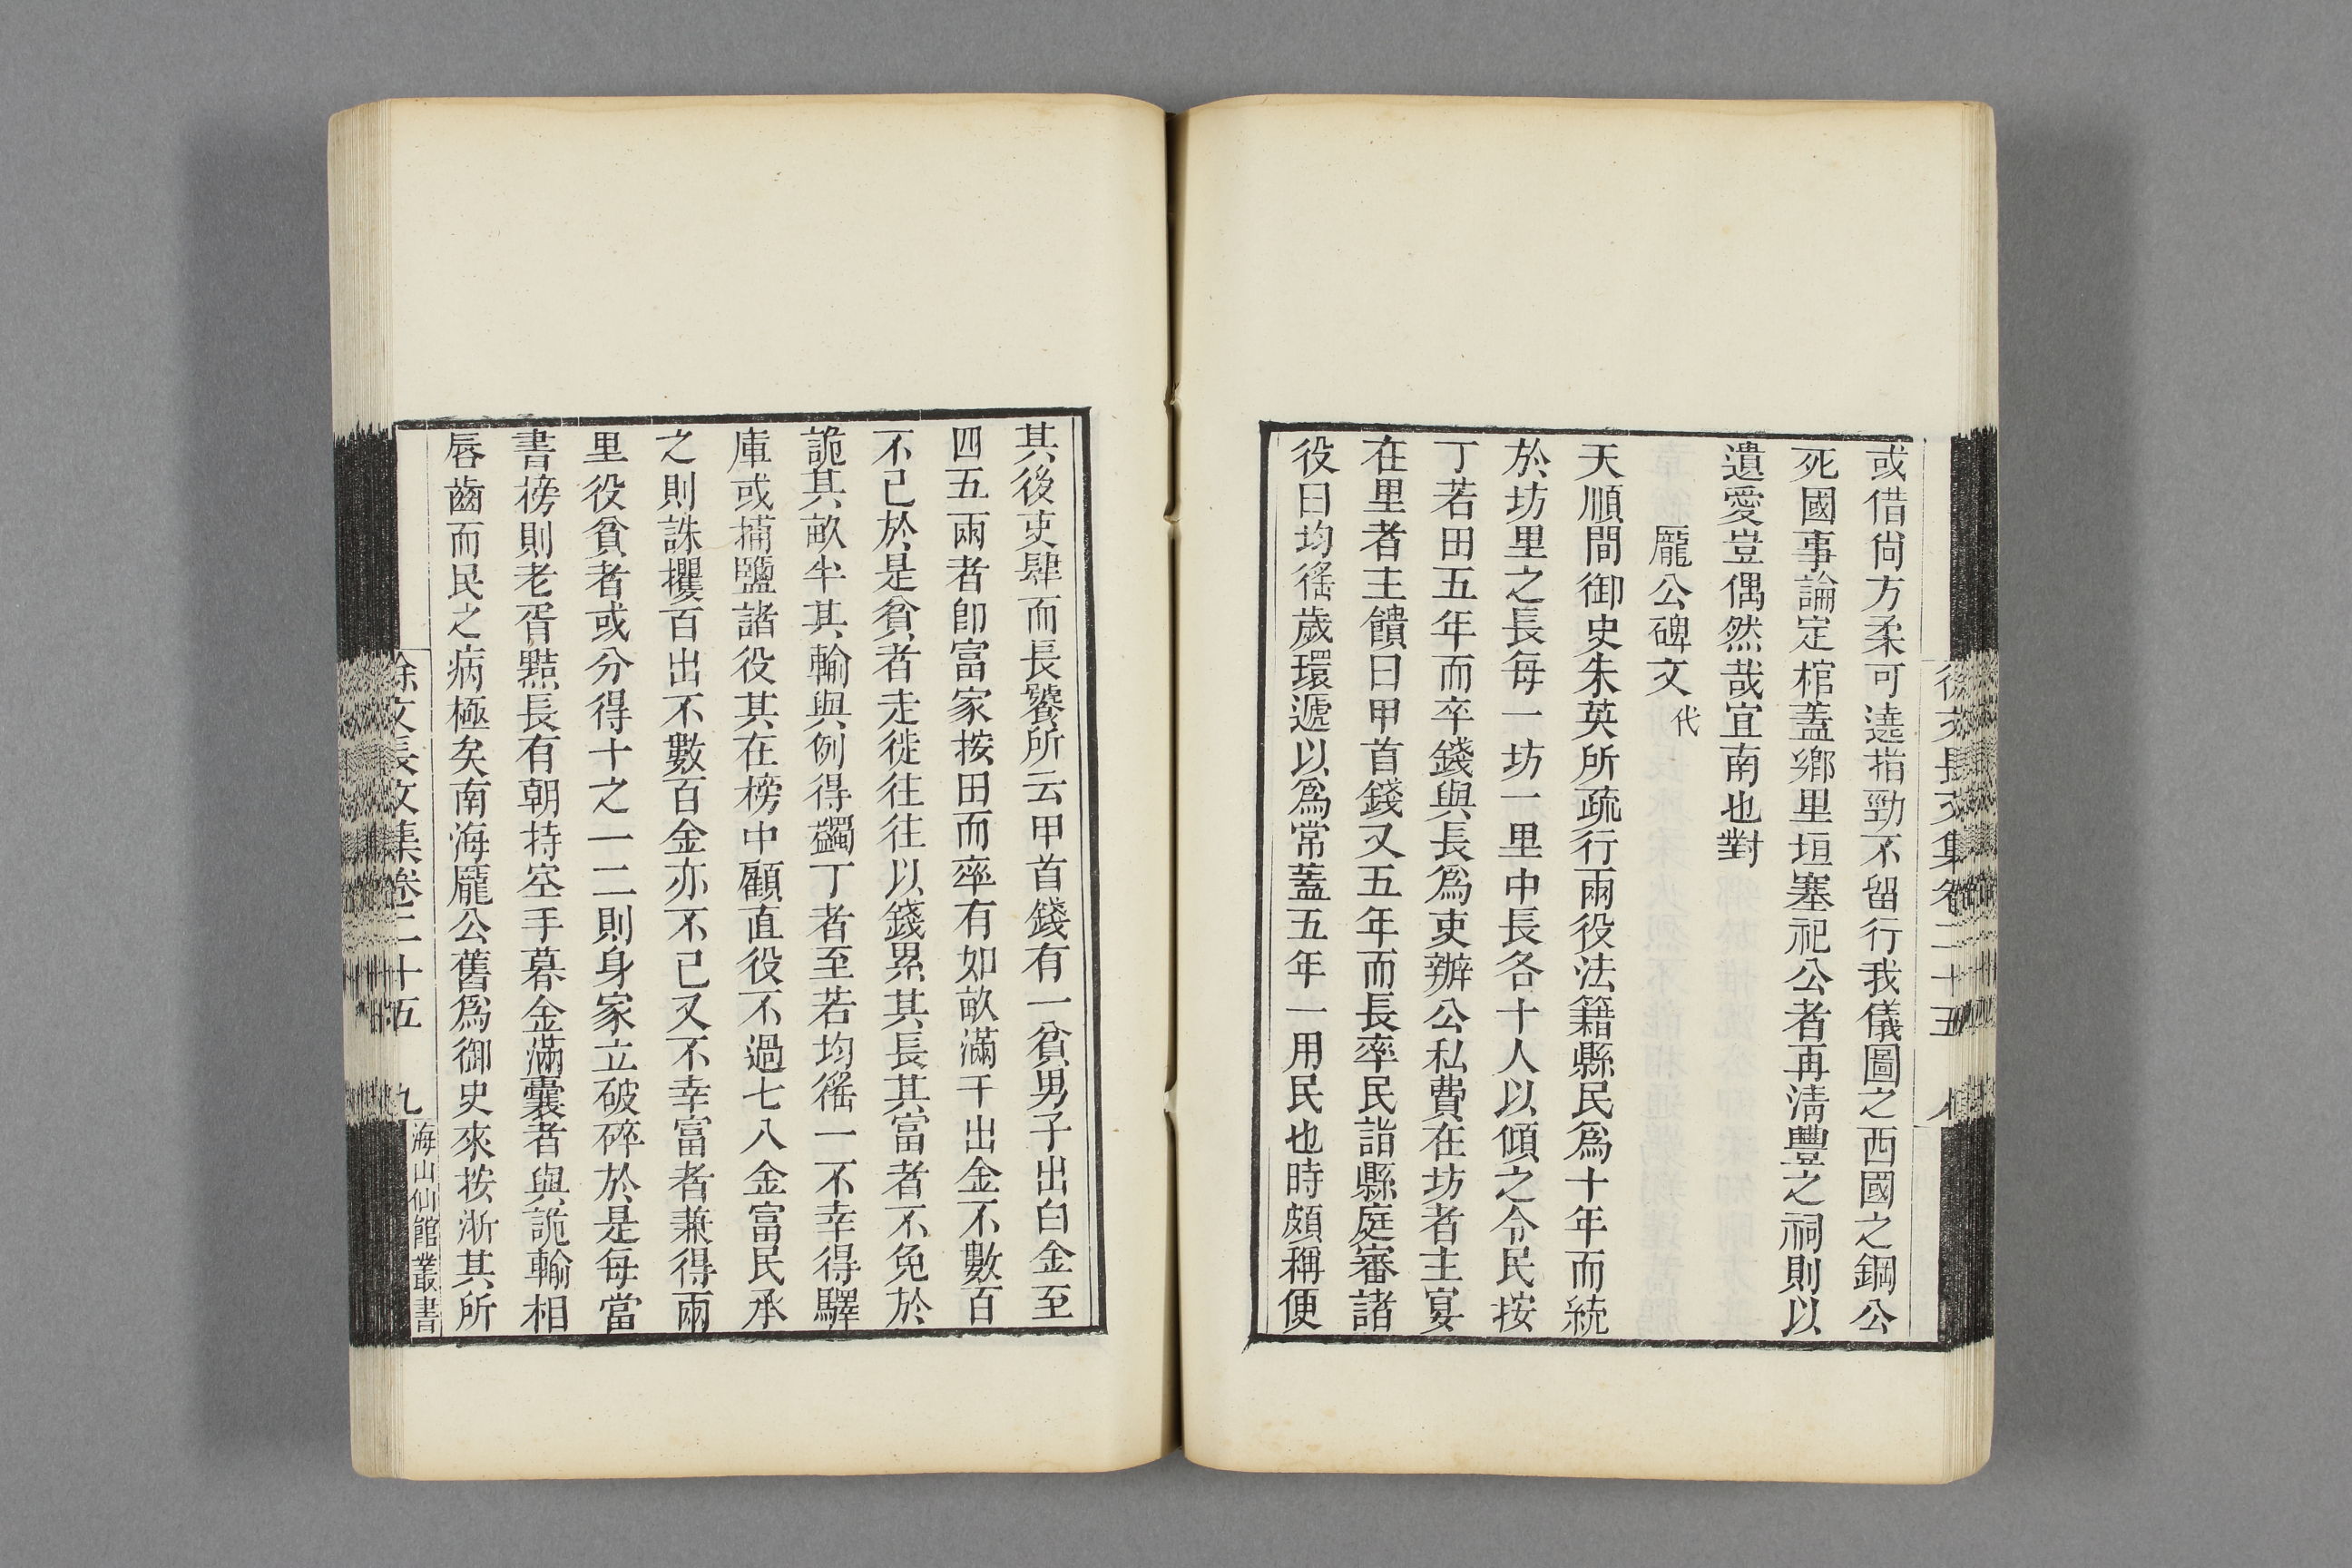 徐文長文集卷二十五
或借尙方柔可遶指勁不留行我儀圖之西國之鋼公
死國事論定棺蓋鄉里垣塞祀公者再淸豐之祠則以
遺愛豈偶然哉宜南也對
龎公碑文代
天順間御史朱英所疏行兩役法籍縣民爲十年而統
於坊里之長每一坊一里中長各十人以傾之令民按
丁若田五年而卒錢與長爲吏辦公私費在坊者主宴
在里者主饋曰甲首錢又五年而長率民詣縣庭審諸
役曰均徭歲環遞以爲常蓋五年一用民也時頗稱便
其後吏肆而長饕所云甲首錢有一貧男子出白金至
四五兩者卽富家按田而率有如畝滿千出金不數百
不已於是貧者走徙往往以錢累其長其當者不免於
詭其畝半其輸與例得蠲丁者至若均徭一不幸得驛
庫或捕鹽諸役其在榜中顧直役不過七八金富民承
之則誅攫百出不數百金亦不已又不幸富者兼得兩
里役貧者或分得十之一二則身家立破碎於是每當
書榜則老胥黠長有朝持空手暮金滿囊者與詭輸相
唇齒而民之病極矣南海龎公舊爲御史來按浙其所
徐文長文集卷二十五
九
海山仙館叢書